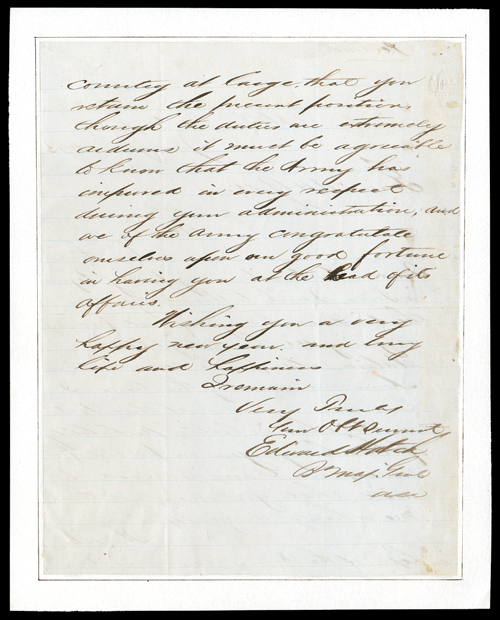 country at large, that you
retain the present position,
though the duties are extremely
arduous it must be agreeable
to know that the Army has
improved in every respect
during your administration, and
we of the Army congratulate
ourselves upon our good fortune
in having you at the head of its
affairs.
Wishing you a very
happy new year, and long
life and happiness
I remain
Very Truly
Your Obt Servant
Edward Hatch
Bt Maj. Genl
USA